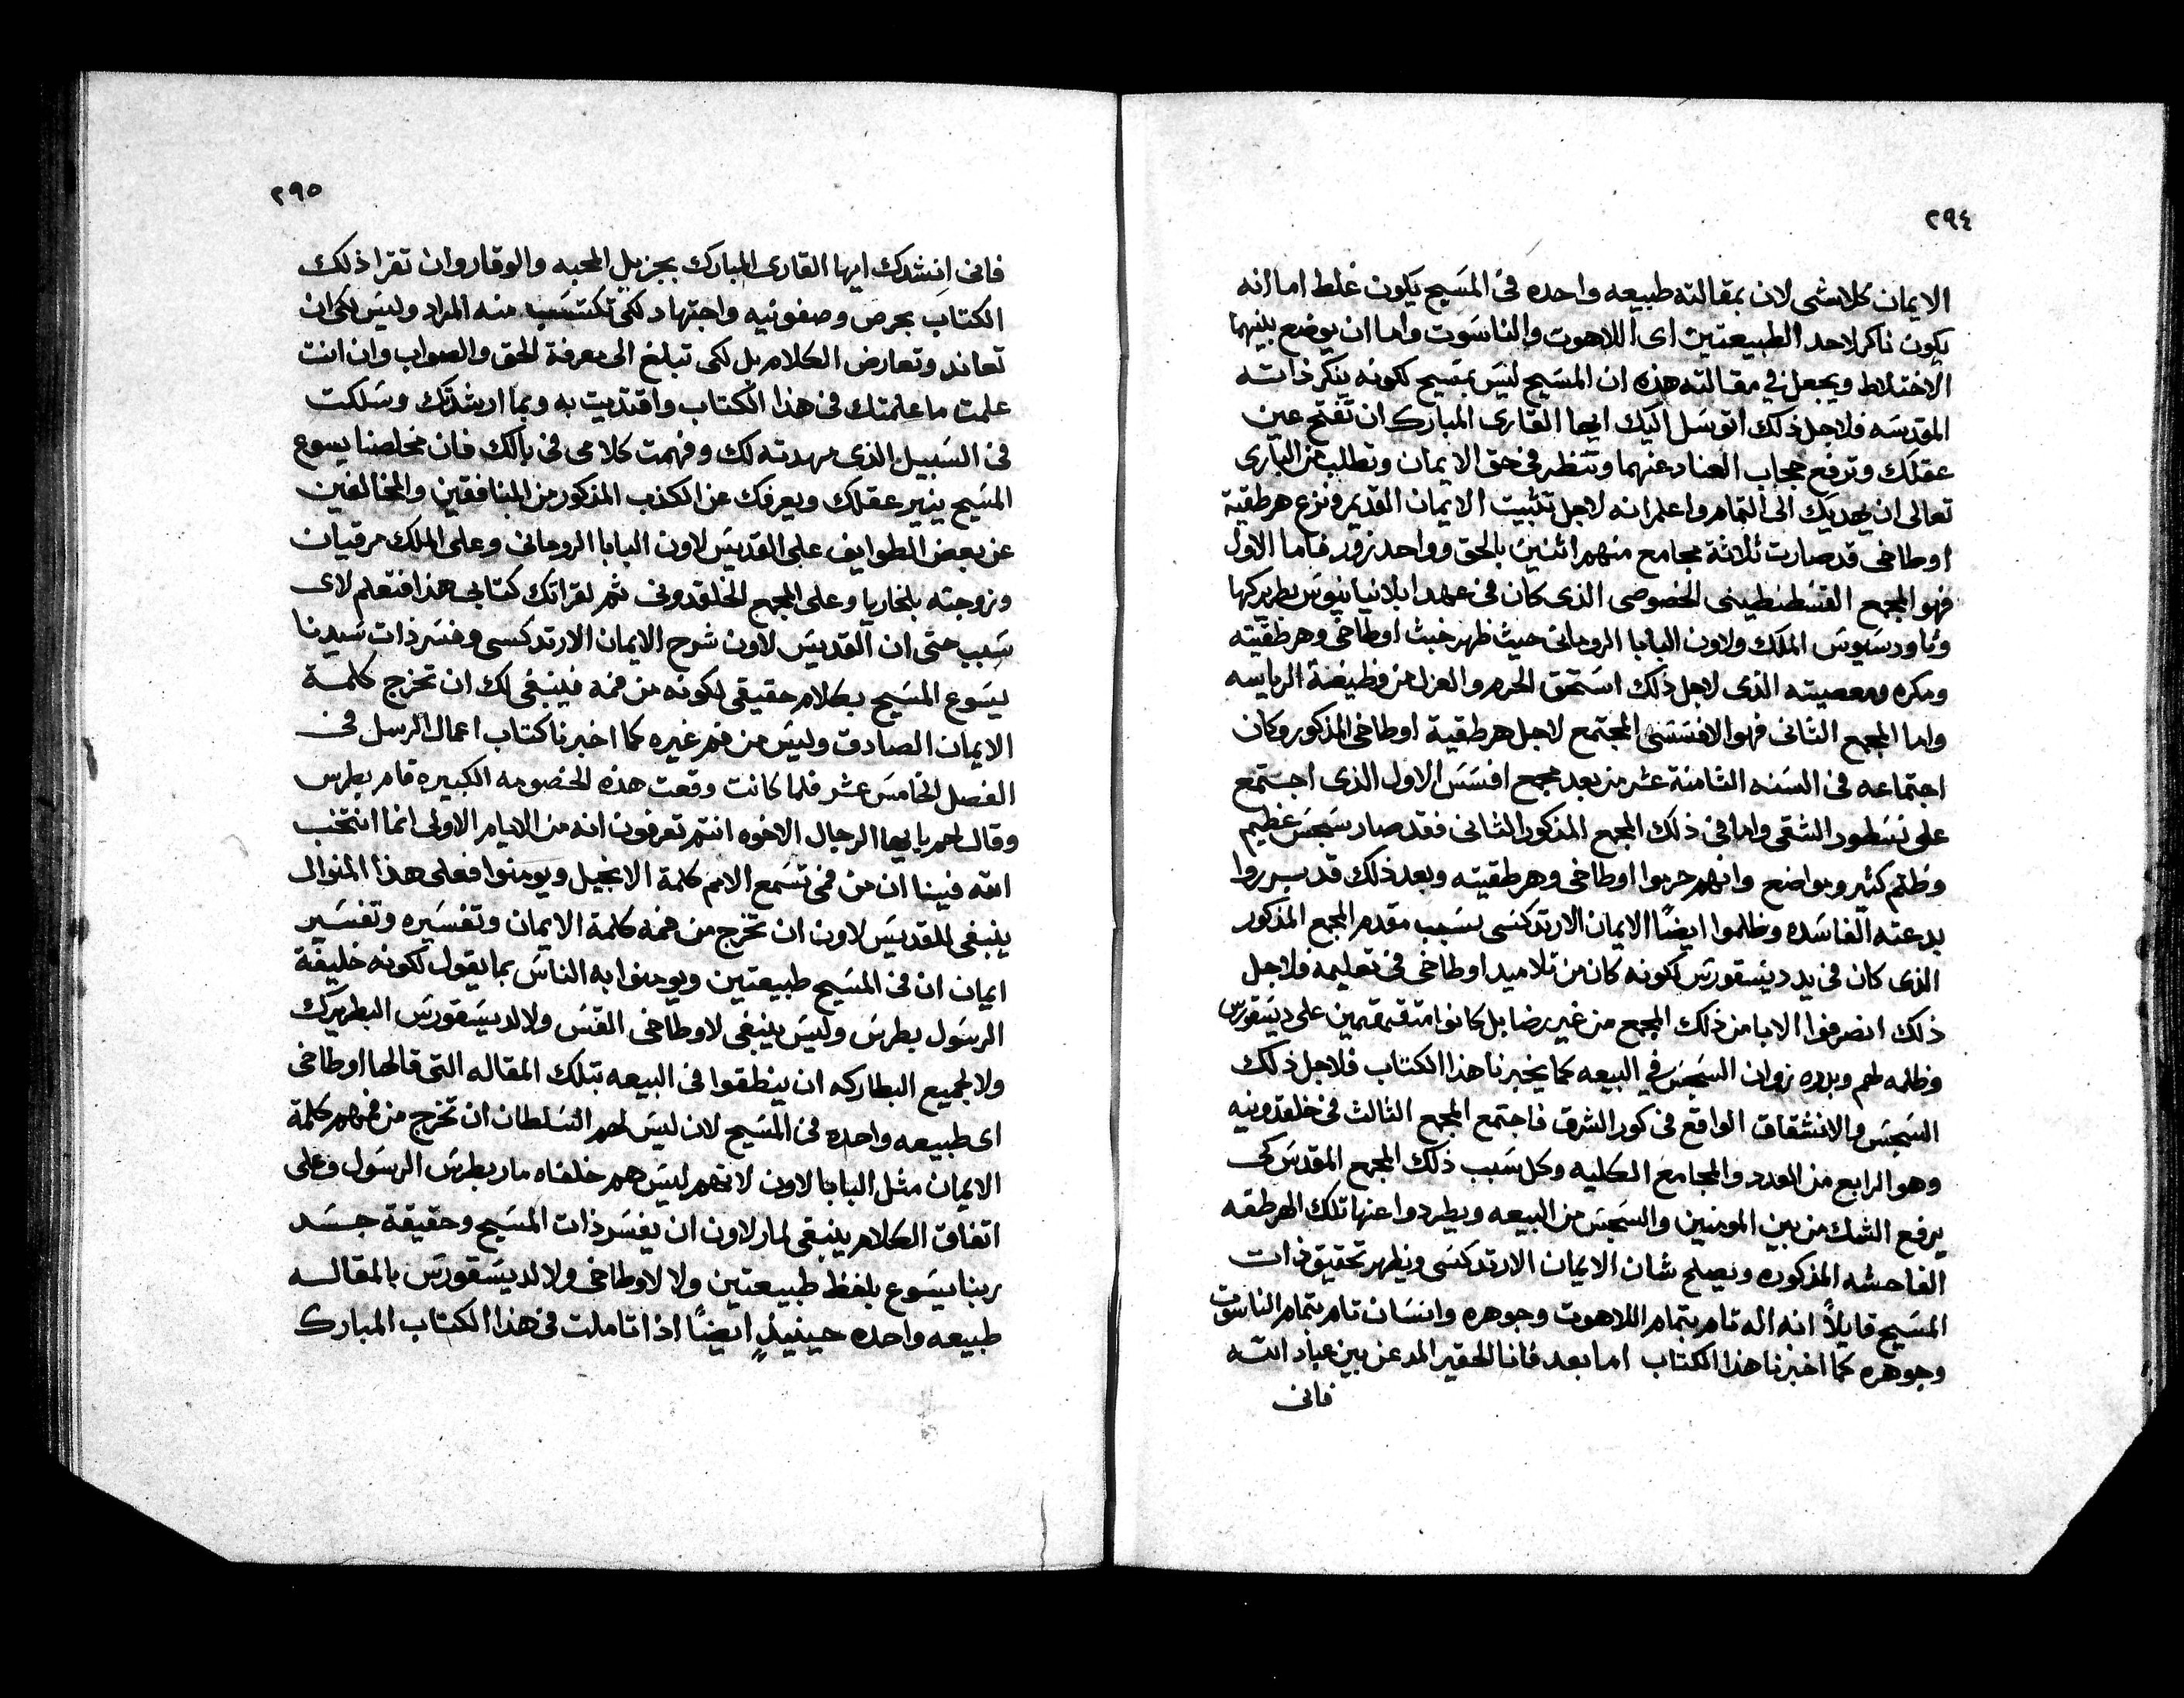 ٢٩٤
الايمان كلاشى لان بمقالته طبيعه واحده فى المسيح يكون غلط اما انه
يكون ناكر لاحد الطبيعتين اى اللاهوت والناسوت واما ان يوضع بينهما
الاختلاط ويجعل فى مقالته هذه ان المسيح ليس بمسيح لكونه ينكر ذاته
المقدسه فلاجل ذلك اتوسل اليك ايها القارى المبارك ان تفتح عين
عقلك وترفع حجاب العناد عنهما وتنظر فى حق الايمان وتطلب من البارى
تعالى ان يهديك الى التمام واعلم انه لاجل تثبيت الايمان القديم ونزع هرطقية
اوطاخى قد صارت ثلاثة مجامع منهم اثنين بالحق وواحد زور فاما الاول
فهو المجمع القسطنطينى الخصوصى الذى كان فى عهد ابلانيانيوس بطريركها
وثاودسيوس الملك ولاون البابا الرومانى حيث ظهر خبث اوطاخى وهرطقيته
ومكره ومعصيته الذى لاجل ذلك استحق الحرم والعزل من وظيفة الرياسه
واما المجمع الثانى فهو الافسسى المجتمع لاجل هرطقية اوطاخى المذكور وكان
اجتماعه فى السنه الثامنة عشر من بعد مجمع افسس الاول الذى اجتمع
على نسطور الشقى واما فى ذلك المجمع المذكور الثانى فقد صار سجس عظيم
وظلم كثير وبواضع وانهم حربوا اوطاخى وهرطقيته وبعد ذلك قد برروا
بدعته الفاسده وظلموا ايضًا الايمان الارتدكسى بسبب مقدم المجمع المذكور
الذى كان فى يد ديسقورس لكونه كان من تلاميد اوطاخى فى تعليمه فلاجل
ذلك انصرفوا الابا من ذلك المجمع من غير رضا بل كانوا متقمقمين على ديسقورس
وظلمه لهم وبدو زوان السجس فى البيعه كما يخبرنا هذا الكتاب فلاجل ذلك
السجس والانشقاق الواقع فى كور الشرق فاجتمع المجمع الثالث فى خلقدونيه
وهو الرابع من العدد والمجامع الكليه وكل سبب ذلك المجمع المقدس كى
يرفع الشك من بين المومنين والسجس من البيعه ويطردوا عنها تلك الهرطقه
الفاحشه المذكوره ويصلح شان الايمان الارتدكسى ويظهر تحقيق ذات
المسيح قايلاً انه اله تام بتمام اللاهوت وجوهره وانسان تام بتمام الناسوت
وجوهره كما اخبرنا هذا الكتاب اما بعد فانا الحقير المدعن بين عباد الله
فانى
٢٩٥
فانى انشدك ايها القارى المبارك بجزيل المحبه والوقار وان تقرا ذلك
الكتاب بحرص وصفونيه واجتهاد لكى تكتسب منه المراد وليس لكى ان
تعاند وتعارض الكلام بل لكى تبلغ الى معرفة الحق والصواب وان انت
علمت ما علمتك فى هذا الكتاب واقتديت به وبما ارشدتك وسلكت
فى السبيل الذى مهدته لك وفهمت كلامى فى بالك فان مخلصنا يسوع
المسيح ينير عقلك ويعرفك عن الكذب المذكور من المنافقين والمخالفين
عن بعض الطوايف على القديس لاون البابا الرومانى وعلى الملك مرقيان
وزوجته بلخاريا وعلى المجمع الخلقدونى ثم بقراتك كتابى هذا فتعلم لاى
سبب حتى ان القديس لاون شرح الايمان الارتدكسى وفسر ذات سيدنا
يسوع المسيح بكلام حقيقى لكونه من فمه فينبغى لك ان تخرج كلمة
الايمان الصادق وليس من فم غيره كما اخبرنا كتاب اعمال الرسل فى
الفصل الخامس عشر فلما كانت وقعت هذه الخصومه الكبيره قام بطرس
وقال لهم يا ايها الرجال الاخوه انتم تعرفون انه من الايام الاولى انما انتخب
الله فينا ان من فمى تسمع الامم كلمة الانجيل ويومنوا فعلى هذا المنوال
ينبغى للقديس لاون ان تخرج من فمه كلمة الايمان وتفسيره وتفسير
ايمان ان فى المسيح طبيعتين ويومنوا به الناس بما يقول لكونه خليفة
الرسول بطرس وليس ينبغى لاوطاخى القس ولا لديسقورس البطريرك
ولا لجميع البطاركه ان ينطقوا فى البيعه بتلك المقاله التى قالها اوطاخى
اى طبيعه واحده فى المسيح لان ليس لهم السلطان ان تخرج من فمهم كلمة
الايمان مثل البابا لاون لانهم ليس هم خلفاه مار بطرس الرسول وعلى
اتفاق الكلام ينبغى لمار لاون ان يفسر ذات المسيح وحقيقة جسد
ربنا يسوع بلفظ طبيعتين ولا لاوطاخى ولا لديسقورس بالمقاله
طبيعه واحده حينيذٍ ايضًا اذا تاملت فى هذا الكتاب المبارك